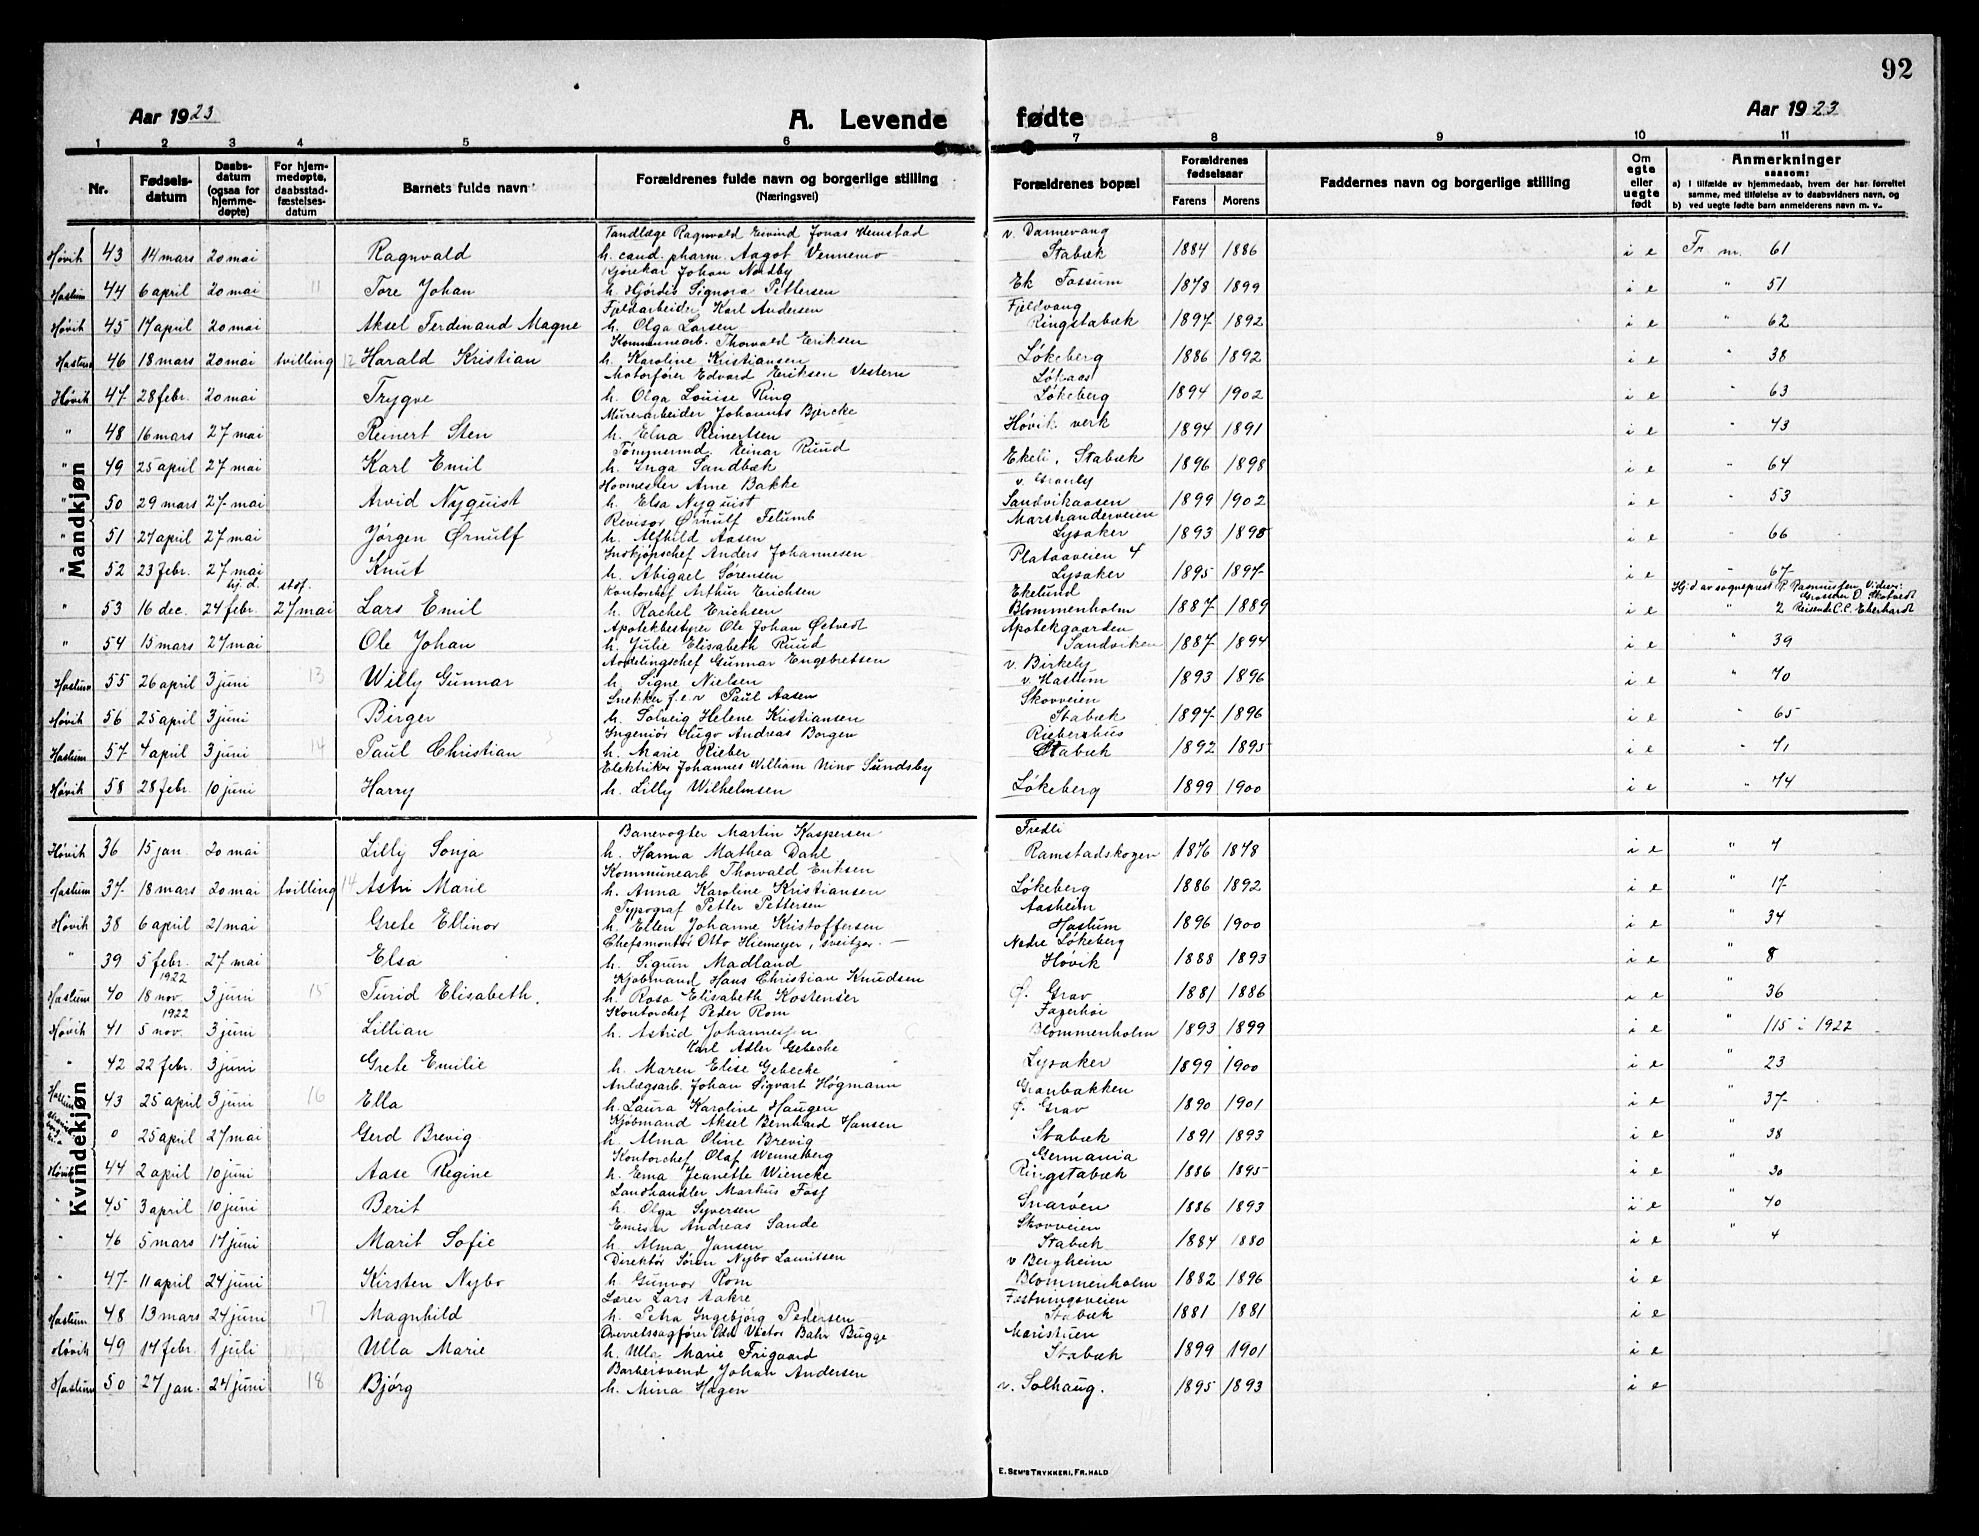 92
Aar 1923 A. Levende fødte Aar 1923
1 2 3 4 5 6 7 8 9 10 11
Nr. Fødselsdatum Daabsdatum (ogsaa for hjemmedøpte) For hjemmedøpte, daabsstadfæstelsesdatum Barnets fulde navn Forældrenes fulde navn og borgerlige stilling (Næringsvei) Forældrenes bopæl Forældrenes fødselsaar Farens Morens Faddernes navn og borgerlige stilling Om egte eller uegte født Anmerkninger saasom:
a) i tilfælde av hjemmedaab, hvem der har forrettet samme, med tilføielse av to daabsvidners navn, og
b) ved uegte fødte barn anmelderens navn m. v.
Mandkjøn
Tandlæge Ragnvald Eivind Jonas Hemstad v. Dannevang
Høvik 43 14 mars 20 mai Ragnvald h. cand. pharm. Aagot Vennemo Stabæk 1884 1886 i e Fr. m. 61
Kjørekar Johan Nordby
Haslum 44 6 april 20 mai 11 Tore Johan h. Hjördis Signora Pettersen Ek Fossum 1878 1899 i e " 51
Fjeldarbeider Karl Andersen Fjeldvang
Høvik 45 17 april 20 mai Aksel Ferdinand Magne h. Olga Larsen Ringstabæk 1897 1892 i e " 62
Kommunearb. Thorvald Eriksen
Haslum 46 18 mars 20 mai tvilling 12 Harald Kristian h. Karoline Kristiansen Løkeberg 1886 1892 i e " 38
Motorfører Edvard Eriksen Vestern Løkaas
Høvik 47 28 febr. 20 mai Trygve h. Olga Louise Ring Løkeberg 1894 1902 i e " 63
Murerarbeider Johannes Bjercke
" 48 16 mars 27 mai Reinert Sten h. Elna Reinertsen Høvik verk 1894 1891 i e " 43
Tømmermd. Einar Ruud
" 49 25 april 27 mai Karl Emil h. Inga Sandbæk Ekeli, Stabæk 1896 1898 i e " 64
Hovmester Arne Bakke v. Granly
" 50 29 mars 27 mai Arvid Nyquist h. Elsa Nyquist Sandvikaasen 1899 1902 i e " 53
Revisor Ørnulf Felumb Marstranderveien
" 51 27 april 27 mai Jørgen Ørnulf h. Alfhild Aasen Lysaker 1893 1895 i e " 66
Indkjøpschef Anders Johannesen Plataaveien 4
" 52 23 febr. 27 mai Knut h. Abigael Sørensen Lysaker 1895 1897 i e " 67
hj. d. staf. Kontorchef Arthur Erichsen Ekelund Hj. d. av sogneprest P. Rasmussen, Vidner:
" 53 16 dec. 24 febr. 27 mai Lars Emil h. Rachel Erichsen Blommenholm 1887 1889 i e " 2
Apotekbestyrer Ole Johan Østvedt Apotekgaarden
" 54 15 mars 27 mai Ole Johan h. Julie Elisabeth Ruud Sandviken 1887 1894 i e " 39
Avdelingschef Gunnar Engebretsen v. Birkely
Haslum 55 26 april 3 juni 13 Willy Gunnar h. Signe Nielsen v. Haslum 1893 1896 i e " 40
Snekker f.e.v Paul Aasen Skovveien
Høvik 56 25 april 3 juni Birger h. Solveig Helene Kristiansen Stabæk 1897 1896 i e " 65
Ingeniør Hugo Andreas Borgen Riebershus
Haslum 57 4 april 3 juni 14 Paul Christian h. Marie Rieber Stabæk 1892 1895 i e " 41
Elektriker Johannes William Nino Sundsby
Høvik 58 28 febr. 10 juni Harry h. Lilly Wilhelmsen Løkeberg 1899 1900 i e " 44
Kvindekjøn
Banevogter Martin Kaspersen Fredli
Høvik 36 15 jan. 20 mai Lilly Sonja h. Hanna Mathea Dahl Ramstadskogen 1876 1878 i e " 7
Kommunearb Thorvald Eriksen
Haslum 37 18 mars 20 mai tvilling 14 Astri Marie h. Anna Karoline Kristiansen Løkeberg 1886 1892 i e " 17
Typograf Petter Pettersen Aasheim
Høvik 38 6 april 21 mai Grete Ellinor h. Ellen Johanne Kristoffersen Haslum 1896 1900 i e " 34
Chefsmontør Otto Hiemeyer, sveitzer. Nedre Løkeberg
" 39 5 febr. 27 mai Elsa h. Sigrun Madland Høvik 1888 1893 i e " 8
1922 Kjøbmand Hans Christian Knudsen
Haslum 40 18 nov. 3 juni 15 Turid Elisabeth h. Rosa Elisabeth Kostenser Ø. Grav 1881 1886 i e " 36
1922 Kontorchef Peder Rom Fagerhøi
Høvik 41 5 nov. 3 juni Lillian h. Astrid Johannessen Blommenholm 1893 1899 i e " 115 i 1922
Karl Adler Gebecke
" 42 22 febr. 3 juni Grete Emilie h. Maren Elise Gebecke Lysaker 1899 1900 i e " 23
Anlægsarb. Johan Sigvart Högmann Granbakken
Haslum 43 25 april 3 juni 16 Ella h. Laura Karoline Haugen Ø. Grav 1890 1901 i e " 37
Kjøbmand Aksel Bernhard Hansen
0 25 april 27 mai Gerd Brevig h. Alma Oline Brevig Stabæk 1891 1893 i e " 38
Kontorchef Olaf Wenneberg Germania
Høvik 44 2 april 10 juni Aase Regine h. Ema Jeanette Wiencke Ringstabæk 1886 1895 i e " 30
Landhandler Markus Foss
" 45 3 april 10 juni Berit h. Olga Syversen Snarøen 1886 1893 i e " 40
Emissær Andreas Sande Skovveien
" 46 5 mars 17 juni Marit Sofie h. Alma Jansen Stabæk 1884 1880 i e " 4
Direktør Søren Nybo Lauritsen v Bergheim
" 47 11 april 24 juni Kirsten Nybo h. Gunvor Rom Blommenholm 1882 1896 i e
Lærer Lars Aakre Festningsveien
Haslum 48 13 mars 24 juni 17 Magnhild h. Petra Ingebjørg Pedersen Stabæk 1881 1881 i e
Overretssagfører Odd Victor Bahr Bugge Maristuen
Høvik 49 14 febr. 1 juli Ulla Marie h. Ulla Marie Frigaard Stabæk 1899 1901 i e
Barbersvend Johan Andersen
Haslum 50 27 jan. 24 juni 18 Bjørg h. Mina Hagen v. Solhaug. 1895 1893 i e
E. SEM'S TRYKKERI, FR.HALD